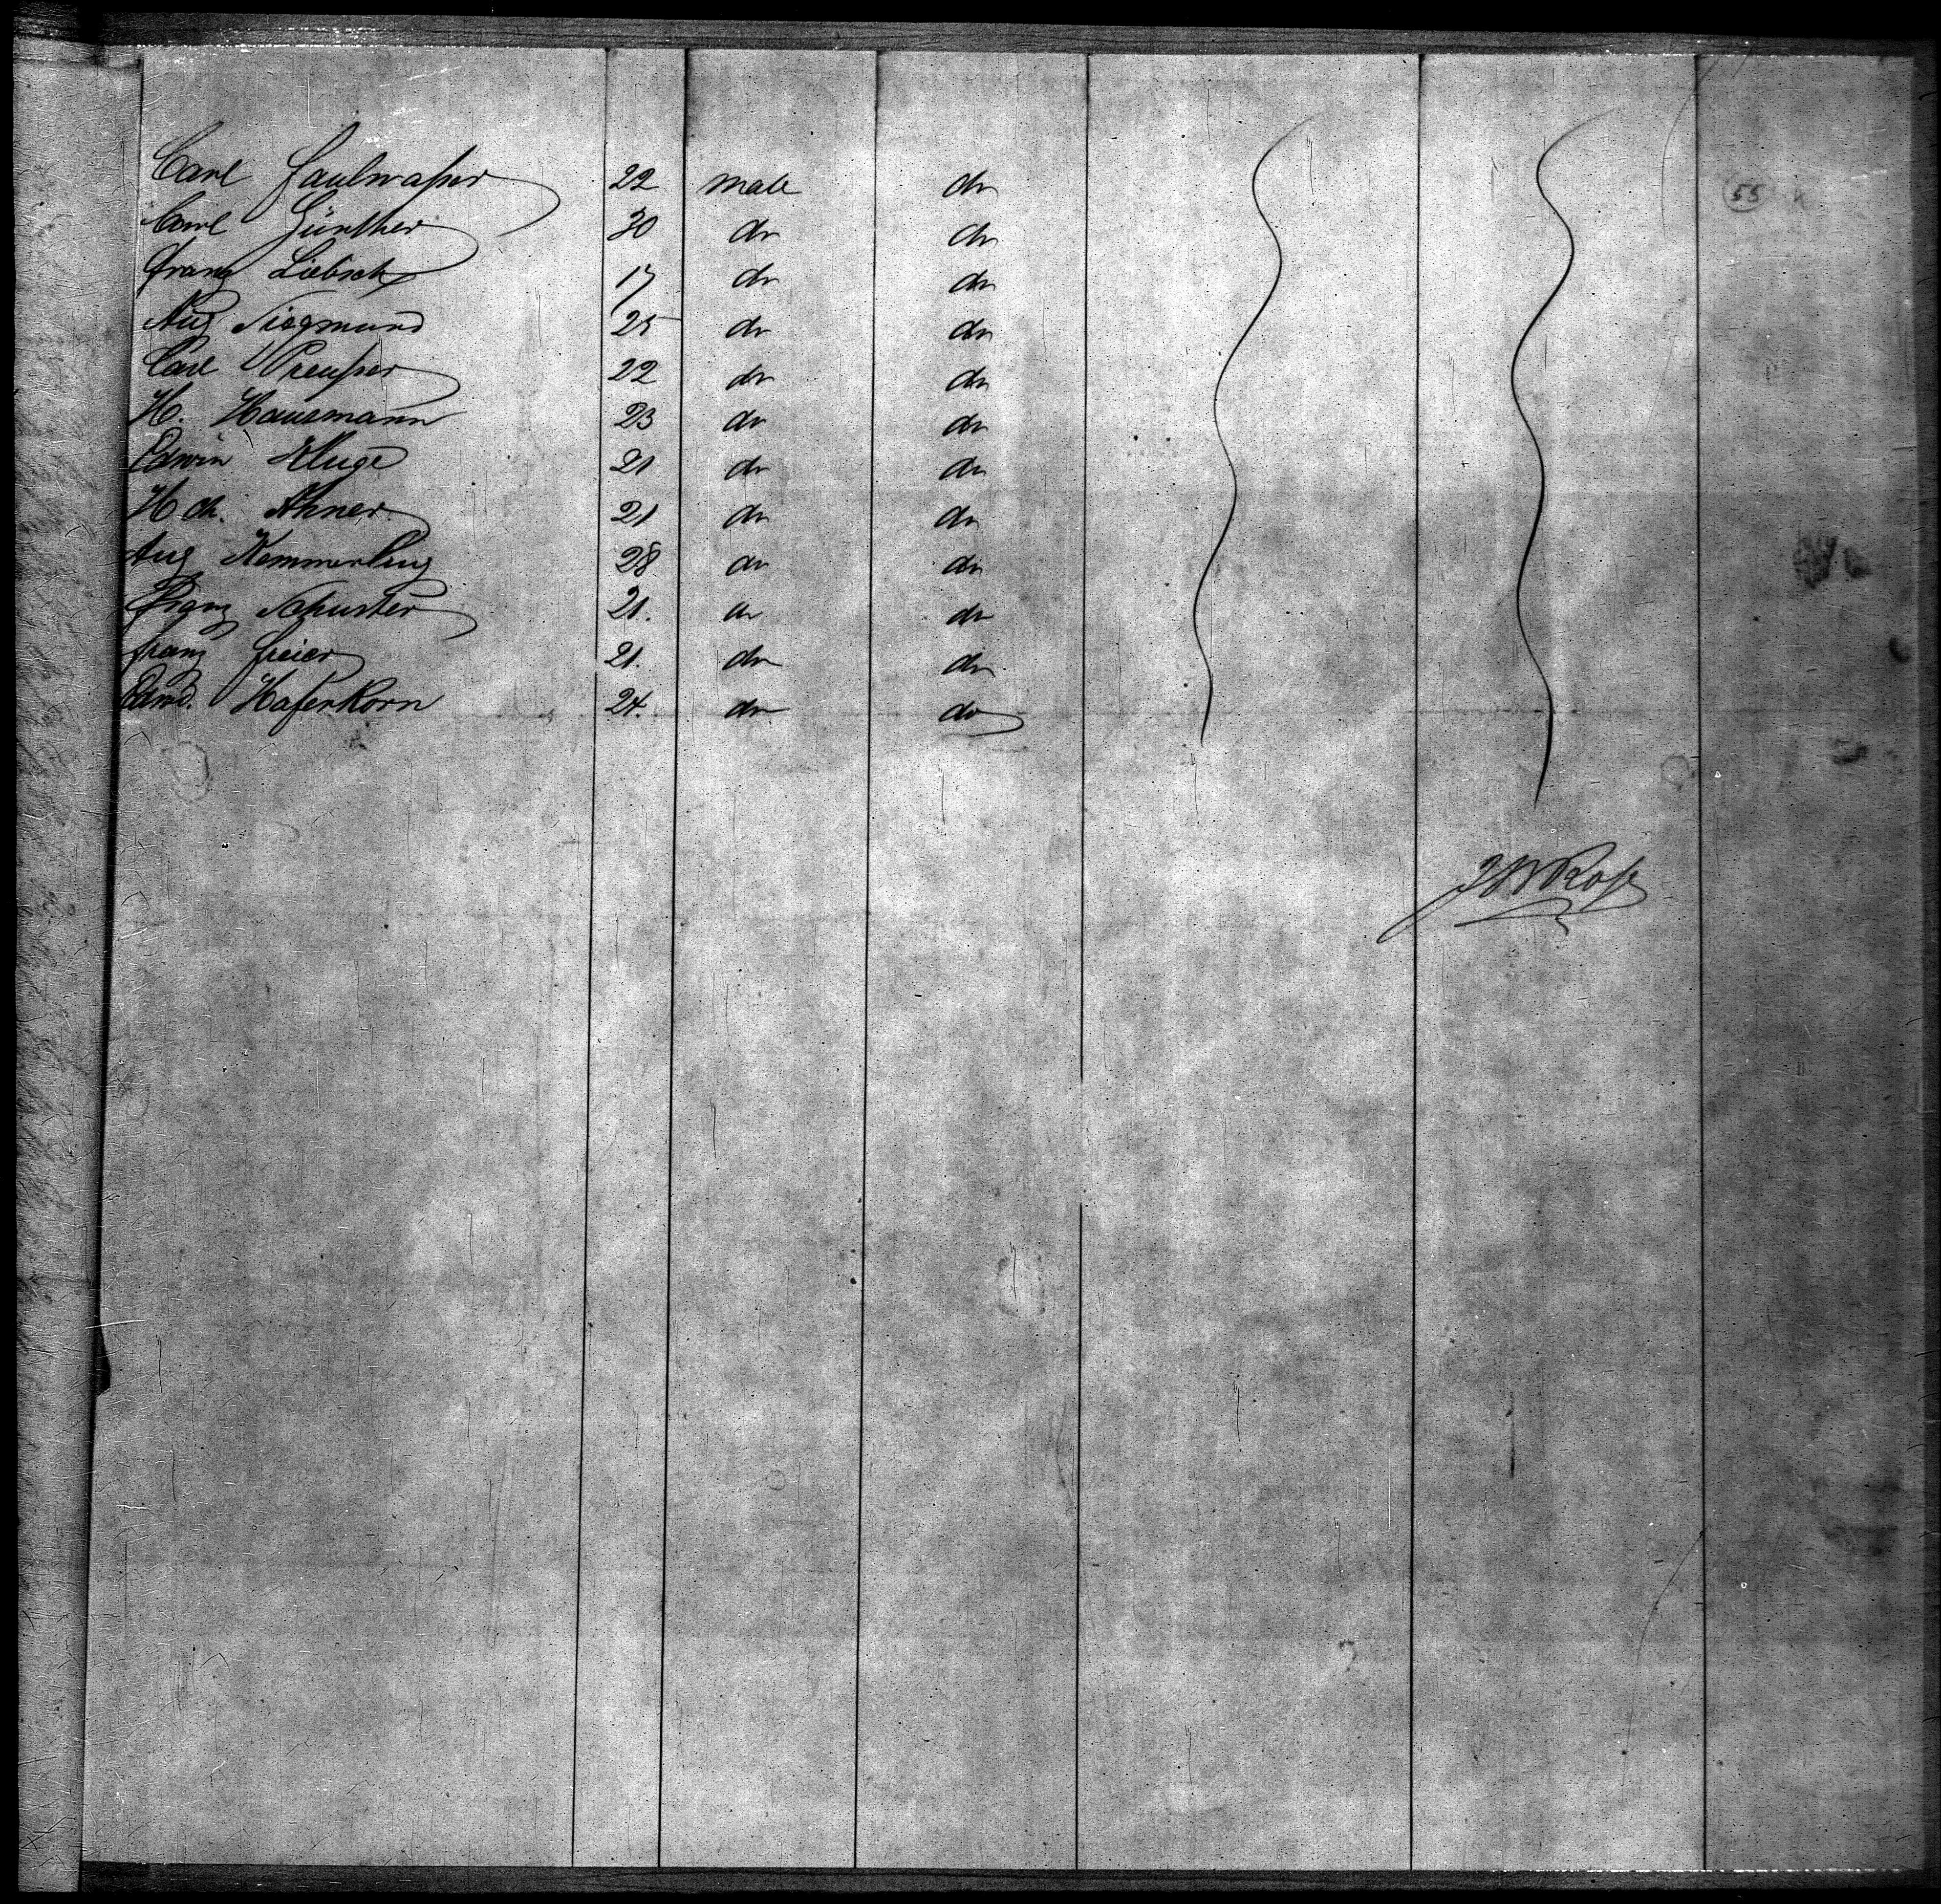 Carl Faulwaßer 22 male do
Carl Günther 30 do do
Franz Liebsch 17 do do
Aug Siegmund 25 do do
Carl Preußer 22 do do
H. Hausmann 23 do do
Edwin Kluge 21 do do
Hch. Ahner 21 do do
Aug Kemmerling 28 do do
Franz Schuster 21. do do
Franz Freier 21. do do
Edmd. Haferkorn 24. do do
55